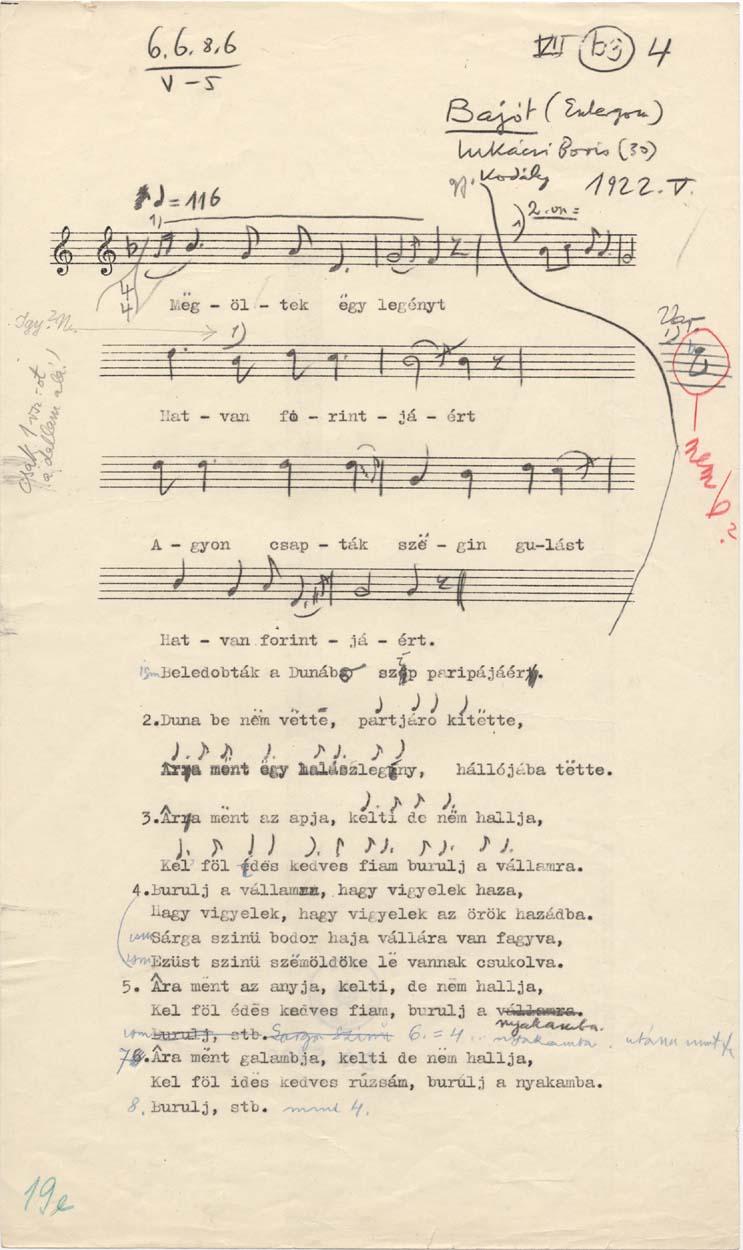 6.6.8.6
V-5
VII b3 4
Bajót (Esztergom)
Lukácsi Boris (30)
gy. Kodály 1922. V.
♩=116
1)
1) 2. vsz =
4
4
Mëg - öl - tek ëgy legényt
Így?
1)
Hat - van fo - rint - já - ért
Csak 1 vsz.-ot
a dallam alá!
1)
nem b?
A - gyon csap - ták szë - gin gu-lást
Hat - van forint - já - ért.
ism Beledobták a Dunába szép paripájáér.
2.Duna be nëm vëtte, partjáro kitëtte,
Arra mënt ëgy halászlegény, hállójába tëtte.
3.Ârra mënt az apja, kelti de nëm hallja,
Kel föl édës kedves fiam burulj a vállamra.
4.Burulj a vállamra, hagy vigyelek haza,
Hagy vigyelek, hagy vigyelek az örök hazádba.
ism Sárga szinü bodor haja vállára van fagyva,
ism Ezüst szinü szëmöldöke lë vannak csukolva.
5. Âra mënt az anyja, kelti, de nëm hallja,
Kel föl édës kedves fiam, burulj a vállamra.
nyakamba.
ism Burulj, stb. Sárga szinü 6. = 4. nyakamba. utána mint
7 6.Âra mënt galambja, kelti de nëm hallja,
Kel föl idës kedves rúzsám, burúlj a nyakamba.
8. Burulj, stb. mind 4.
19e